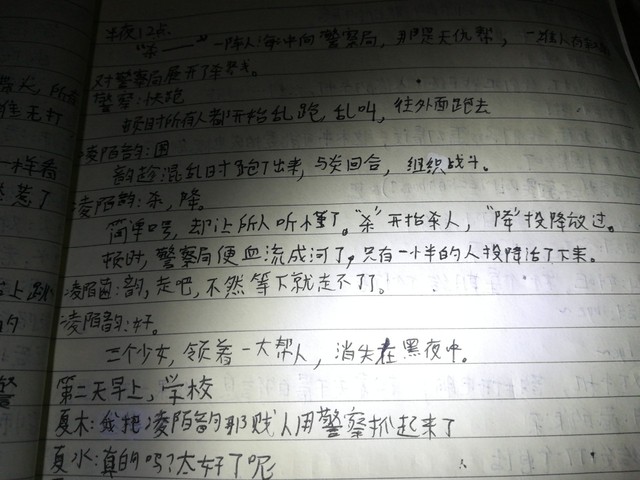 半夜12点
"杀——"一阵人海冲向警察局,那是天仇帮,一堆人
对警察局展开了杀戮。
警察:快跑
顿时所有人都开始乱跑,乱叫,往外面跑去
凌陌韵:困
韵趁混乱时跑了出来,与茵回合,组织战斗。
凌陌韵:杀,降。
简单口号,却让所人听懂了。"杀"开始杀人,"降"投降放过。
顿时,警察局便血流成河了,只有一小半的人投降活了下来。
凌陌茵:韵,走吧,不然等下就走不了了。
凌陌韵:好。
三个少女,领着一大帮人,消失在黑夜中。
第二天早上,学校
夏木:我把凌陌韵那贱人用警察抓起来了
夏水:真的吗?太好了呢